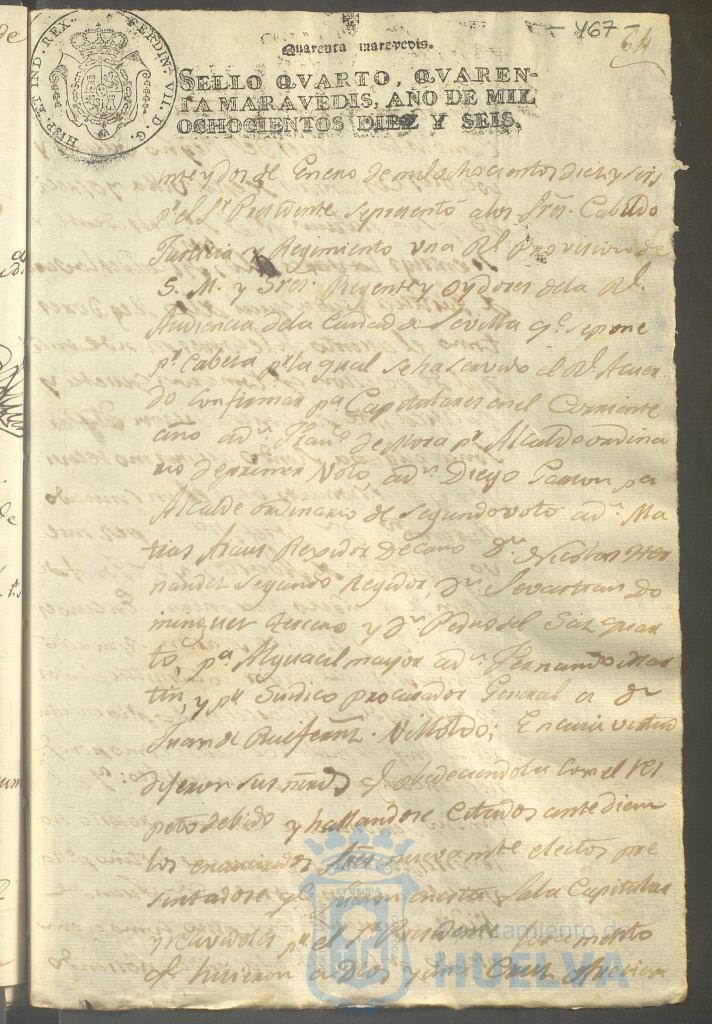 467
64
HISP. ET IND. REX. FERDIN. VII. D. G.
Quarenta maravedis.
SELLO QVARTO, QVAREN-
TA MARAVEDIS, AÑO DE MIL
OCHOCIENTOS DIEZ Y SEIS.
inteydos de Enero de mil ochocientos diez y seis
pr. el Sr. Presidente se presentó a los Sres. Cabildo
Justicia y Regimiento una Rl. Provision de
S. M. y Sres. Regente y oydores dela Rl.
Audiencia dela Ciudad de Sevilla qe. se pone
pr. Cabeza pr. la qual se ha servido el Rl. Acuer
do confirmar pa. Capitulares en el Corriente
año a dn. Franco. de Mora pr. Alcalde ordina
rio de primer Voto, a dn. Diego Garron pa.
Alcalde ordinario de segundo voto a dn. Ma
tias Rexidor Decano dn. Nicolas Her
nandez segundo Regidor, dn. Sevastian Do
minguez tercero y dn. Pedro del Saz quar
to, pa. Alguacil mayor a dn. Fernando Mar
tin, y pa. Sindico procurador General a dn
Juan de Villoldo; En cuia virtud
dijeron sus mrds. qe. obedeciendola con el res
peto debido y hallandose Citados antediem
los enunciados Sres. nuevamte. electos pre
sentadose qe. fueron en esta Sala Capitular
y recividoles pr. el Sr. Presidente juramento
qe. hicieron a Dios y una Cruz ofrecieron
Ayuntamiento de
HUELVA